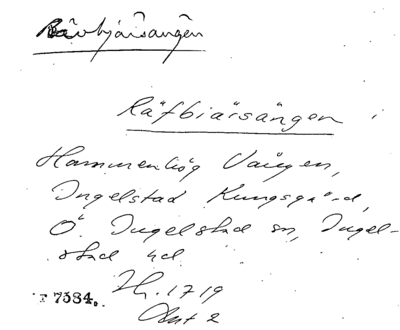 Rävbjärsängen
Räfbiärsängen
Hammenhög Vången,
Ingelstad Kungsgård,
Ö. Ingelstad sn, Ingel-
stad hd
Jb. 1719
Ant 2
F 7384.